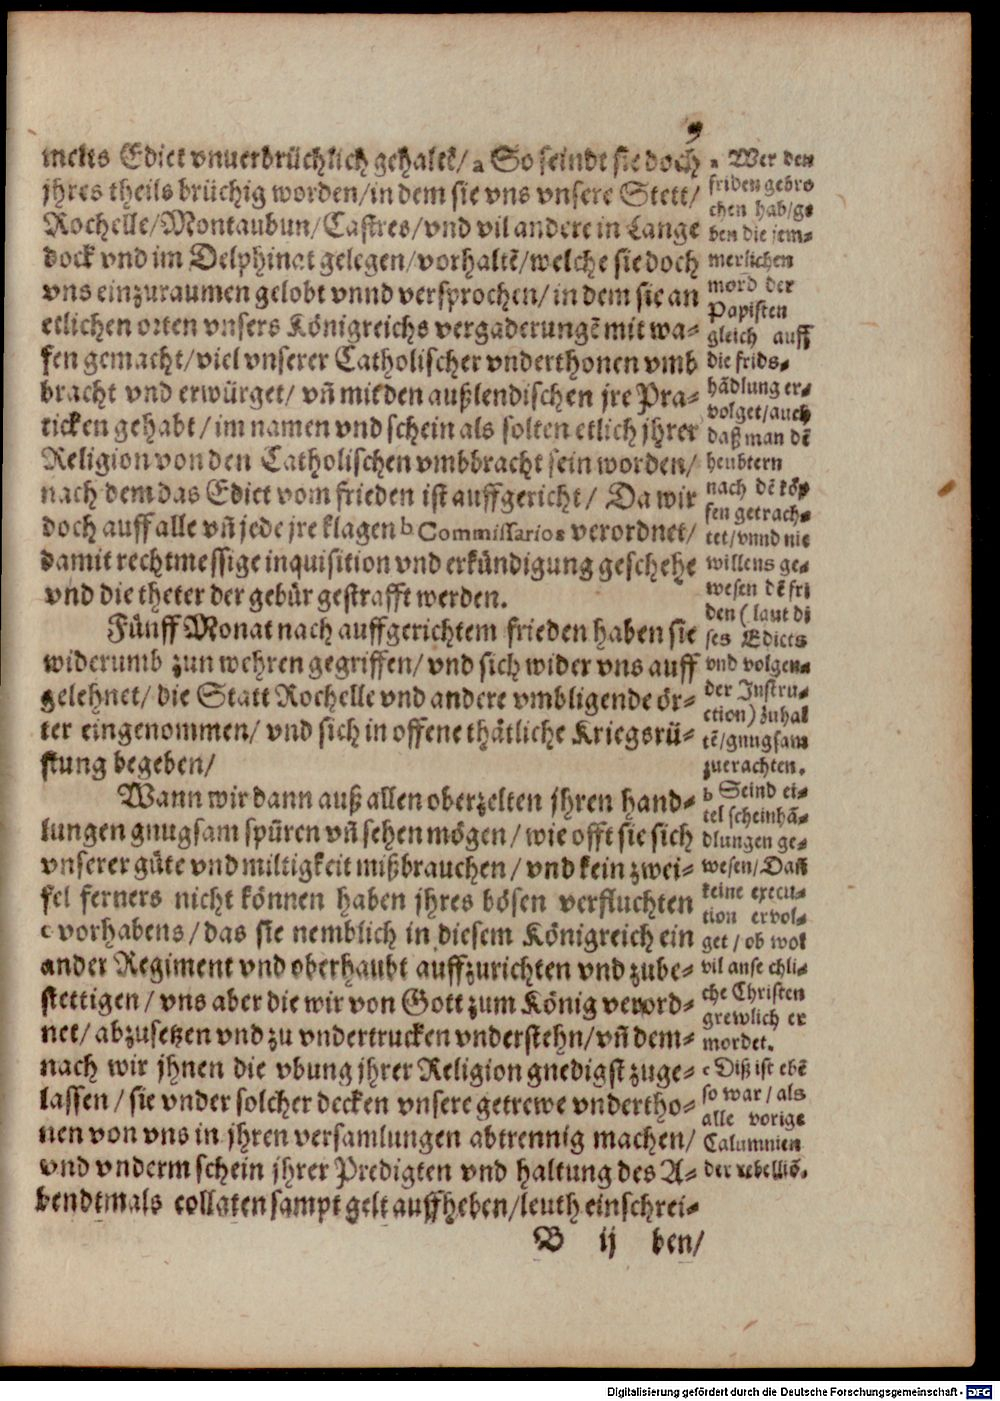 9
melts Edict vnuerbrüchlich gehaltē/ a So seindt sie doch
jhres theils brüchig worden/ in dem sie vns vnsere Stett/
Rochelle/ Montaubun/ Castres/ vnd vil andere in Lange
dock vnd im Delphinat gelegen/ vorhaltē/ welche sie doch
vns einzuraumen gelobt vnnd versprochen/ in dem sie an
etlichen orten vnsers Königreichs vergaderungē mit wa-
fen gemacht/ viel vnserer Catholischer vnderthonen vmb
bracht vnd erwürget/ vñ mit den außlendischen jre Pra-
ticken gehabt/ im namen vnd schein als solten etlich jhrer
Religion von den Catholischen vmbbracht sein worden/
nach dem das Edict vom frieden ist auffgericht/ Da wir
doch auff alle vñ jede jre klagen b Commissarios verordnet/
damit rechtmessige inquisition vnd erkündigung geschehe
vnd die theter der gebür gestrafft werden.
Fünff Monat nach auffgerichtem frieden haben sie
widerumb zun wehren gegriffen/ vnd sich wider vns auff
gelehnet/ die Statt Rochelle vnd andere vmbligende ör-
ter eingenommen/ vnd sich in offene thätliche Kriegsrü-
stung begeben/
Wann wir dann auß allen oberzelten jhren hand-
lungen gnugsam spüren vñ sehen mögen/ wie offt sie sich
vnserer güte vnd miltigkeit mißbrauchen/ vnd kein zwei-
fel ferners nicht können haben jhres bösen verfluchten
c vorhabens/ das sie nemblich in diesem Königreich ein
ander Regiment vnd oberhaubt auffzurichten vnd zube-
stettigen/ vns aber die wir von Gott zum König verord-
net/ abzusetzen vnd zu vndertrucken vnderstehn/ vñ dem-
nach wir jhnen die vbung jhrer Religion gnedigst zuge-
lassen/ sie vnder solcher decken vnsere getrewe vndertho-
nen von vns in jhren versamlungen abtrennig machen/
vnd vnderm schein jhrer Predigten vnd haltung des A-
bendtmals collaten sampt gelt auffheben/ leuth einschrei-
B ij ben/
a Wer den
friden gebro
chen hab/ ge
ben die jem-
merlichen
mord der
Papisten
gleich auff
die frids-
hādlung er-
volget/ auch
daß man dē
heubtern
nach dē köp
fen getrach-
tet/ vnnd nie
willens ge-
wesen dē fri
den (laut di
ses Edicts
vnd volgen-
der Instru-
ction) zuhal
tē/ gnugsam
zuerachten.
b Seind ei-
tel scheinhā-
dlungen ge-
wesen/ Dañ
keine execu-
tion ervol-
get/ ob wol
vil ansechli-
che Christen
grewlich er
mordet.
c Diß ist ebē
so war/ als
alle vorige
Calumnien
der rebelliō.
Digitalisierung gefördert durch die Deutsche Forschungsgemeinschaft - DFG